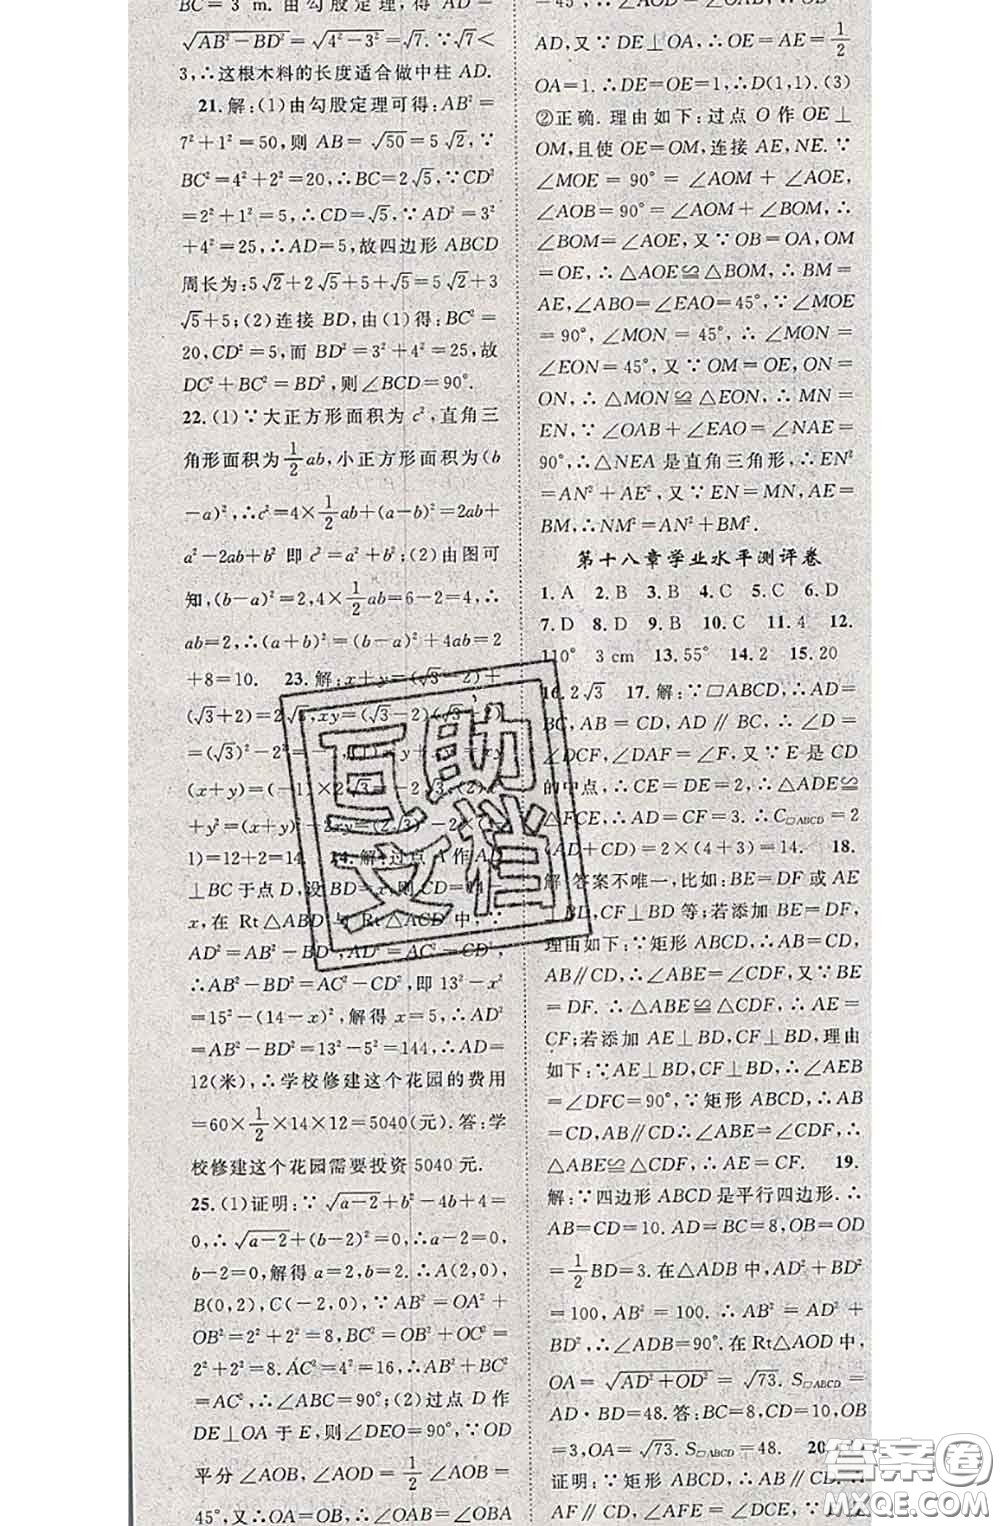 BC=3 m. 由勾股定理,得 AD=
√(AB²-BD²)=√(4²-3²)=√7. ∵√7<
3,∴这根木料的长度适合做中柱 AD.
21.解:(1)由勾股定理可得:AB²=
7²+1²=50,则 AB=√50=5√2,∵
BC²=4²+2²=20,∴BC=2√5,∵CD²
=2²+1²=5,∴CD=√5,∵AD²=3²
+4²=25,∴AD=5,故四边形 ABCD
周长为:5√2+2√5+5+√5=5√2+
3√5+5;(2)连接 BD,由(1)得:BC²=
20,CD²=5,而 BD²=3²+4²=25,故
DC²+BC²=BD²,则∠BCD=90°.
22.(1)∵大正方形面积为 c²,直角三
角形面积为1/2ab,小正方形面积为(b
-a)²,∴c²=4×1/2ab+(a-b)²=2ab+
a²-2ab+b² 即 c²=a²+b²;(2)由图可
知,(b-a)²=2,4×1/2ab=6-2=4,∴
ab=2,∴(a+b)²=(b-a)²+4ab=2
+8=10. 23.解:x+y=(√3-2)+
(√3+2)=2√3,xy=(√3-2)(√3+2)
=(√3)²-2²=-1.
(x+y)=(-1)×2√3=-2√3,
+y²=(x+y)²-2xy=(2√3)²-2×(-
1)=12+2=14. 24.解:过点 A 作 AD
⊥BC 于点 D,设 BD=x,则 CD=14-
x,在 Rt△ABD 与 Rt△ACD 中,∵
AD²=AB²-BD²,AD²=AC²-CD²,
∴AB²-BD²=AC²-CD²,即 13²-x²
=15²-(14-x)²,解得 x=5,∴AD²=
AB²-BD²=13²-5²=144,∴AD=
12(米),∴学校修建这个花园的费用
=60×1/2×14×12=5040(元).答:学
校修建这个花园需要投资 5040 元.
25.(1)证明:∵√(a-2)+b²-4b+4=
0,∴√(a-2)+(b-2)²=0,∴a-2=0,
b-2=0,解得 a=2,b=2.∴A(2,0),
B(0,2),C(-2,0).∵AB²=OA²+
OB²=2²+2²=8,BC²=OB²+OC²=
2²+2²=8.AC²=4²=16,∴AB²+BC²
=AC²,∴∠ABC=90°;(2)过点 D 作
DE⊥OA 于 E,则∠DEO=90°,∵OD
平分∠AOB,∴∠AOD=1/2∠AOB=
45°,又∵OA=OB,∴∠OAB=∠OBA
=45°,
AD,又∵DE⊥OA,∴OE=AE=1/2
OA=1.∴DE=OE=1,∴D(1,1).(3)
②正确.理由如下:过点 O 作 OE⊥
OM,且使 OE=OM,连接 AE,NE.∵
∠MOE = 90° = ∠AOM + ∠AOE,
∠AOB=90°=∠AOM+∠BOM,∴
∠BOM=∠AOE,又∵OB=OA,OM
=OE,∴△AOE≌△BOM,∴BM=
AE,∠ABO=∠EAO=45°,∵∠MOE
=90°,∠MON = 45°,∴∠MON =
∠EON=45°,又∵OM=OE,ON=
ON,∴△MON≌△EON,∴MN=
EN,∵∠OAB+∠EAO=∠NAE=
90°,∴△NEA 是直角三角形,∴EN²
=AN²+AE²,又∵EN=MN,AE=
BM,∴NM²=AN²+BM².
第十八章学业水平测评卷
1.A 2.B 3.B 4.C 5.C 6.D
7.D 8.D 9.B 10.C 11.4 12.
110° 3 cm 13.55° 14.2 15.20
16.2√3 17.解:∵▱ABCD,∴AD=
BC,AB=CD,AD∥BC,∴∠D=
∠DCF,∠DAF=∠F,又∵E 是 CD
的中点,∴CE=DE=2,∴△ADE≌
△FCE,∴AD=CF=3.∴C▱ABCD=2
(AD+CD)=2×(4+3)=14. 18.
解:答案不唯一,比如:BE=DF 或 AE
⊥BD,CF⊥BD 等;若添加 BE=DF,
理由如下:∵矩形 ABCD,∴AB=CD,
AB∥CD,∴∠ABE=∠CDF,又∵BE
=DF.∴△ABE≌△CDF,∴AE=
CF;若添加 AE⊥BD,CF⊥BD,理由
如下:∵AE⊥BD,CF⊥BD,∴∠AEB
=∠DFC=90°,∵矩形 ABCD,∴AB
=CD,AB∥CD∴∠ABE=∠CDF,∴
△ABE≌△CDF,∴AE=CF. 19.
解:∵四边形 ABCD 是平行四边形.∴
AB=CD=10.AD=BC=8,OB=OD
=1/2BD=3.在△ADB 中,AD²+BD²
=100,AB²=100.∴AB²=AD²+
BD²,∴∠ADB=90°.在 Rt△AOD 中,
OA=√(AD²+OD²)=√73.S▱ABCD=
AD·BD=48.答:BC=8,CD=10,OB
=3,OA=√73.S▱ABCD=48. 20.
证明:∵矩形 ABCD,∴AB∥CD.
AF∥CD,∴∠AFE=∠DCE,∵
互助文档
答案圈
MXQE.COM